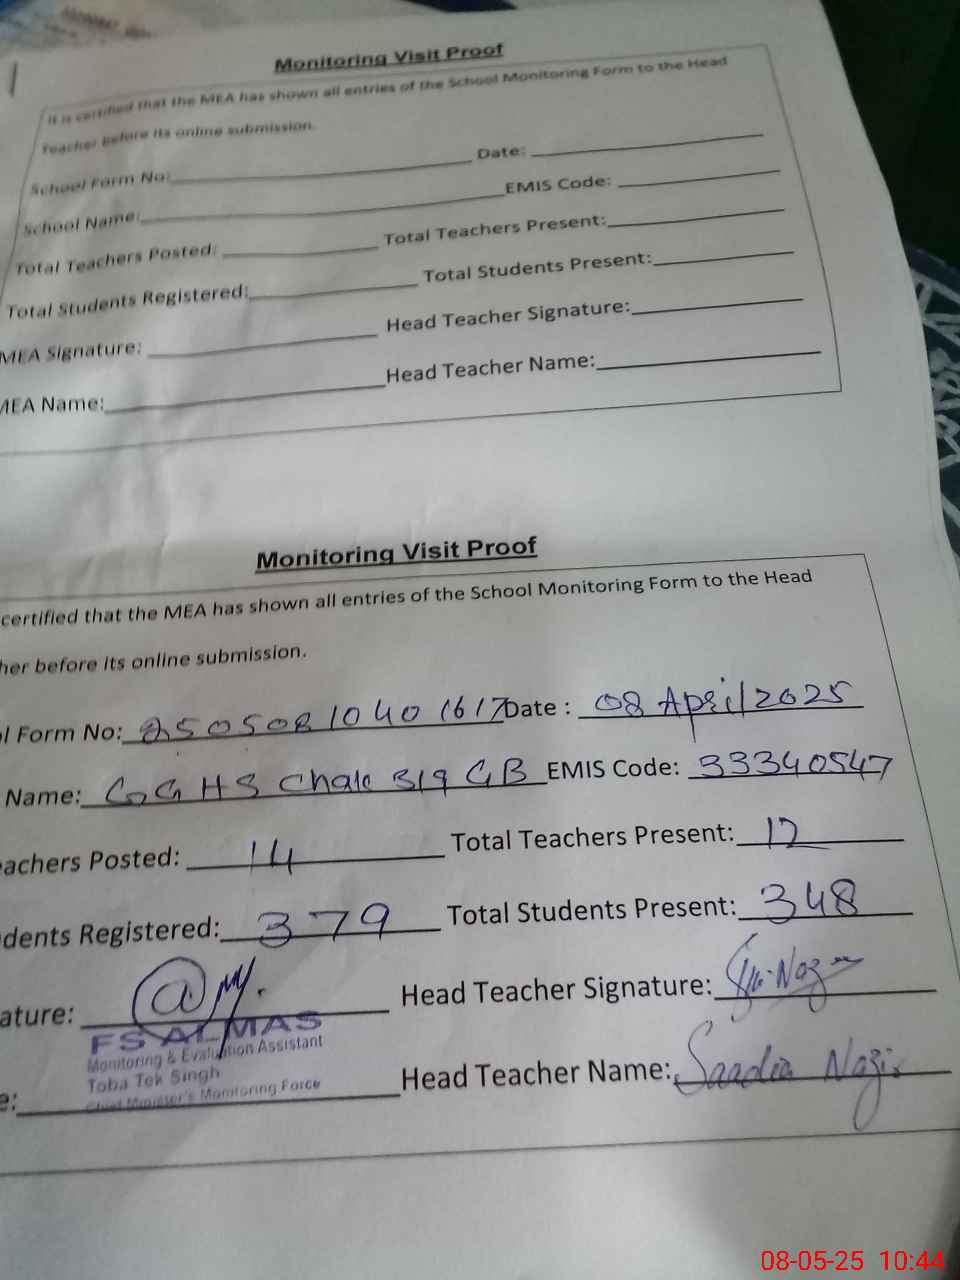 Monitoring Visit Proof
It is certified that the MEA has shown all entries of the School Monitoring Form to the Head
Teacher before its online submission.
School Form No: Date:
School Name: EMIS Code:
Total Teachers Posted: Total Teachers Present:
Total Students Registered: Total Students Present:
MEA Signature: Head Teacher Signature:
MEA Name: Head Teacher Name:
Monitoring Visit Proof
certified that the MEA has shown all entries of the School Monitoring Form to the Head
her before its online submission.
l Form No: 25050810401617 Date : 08 April 2025
Name: GGHS Chak 319 GB EMIS Code: 33340547
eachers Posted: 14 Total Teachers Present: 12
dents Registered: 379 Total Students Present: 348
ature: Head Teacher Signature:
FS ALMAS
Monitoring & Evaluation Assistant
Toba Tek Singh
Chief Minister's Monitoring Force
e: Head Teacher Name: Saadia Nazir
08-05-25 10:44